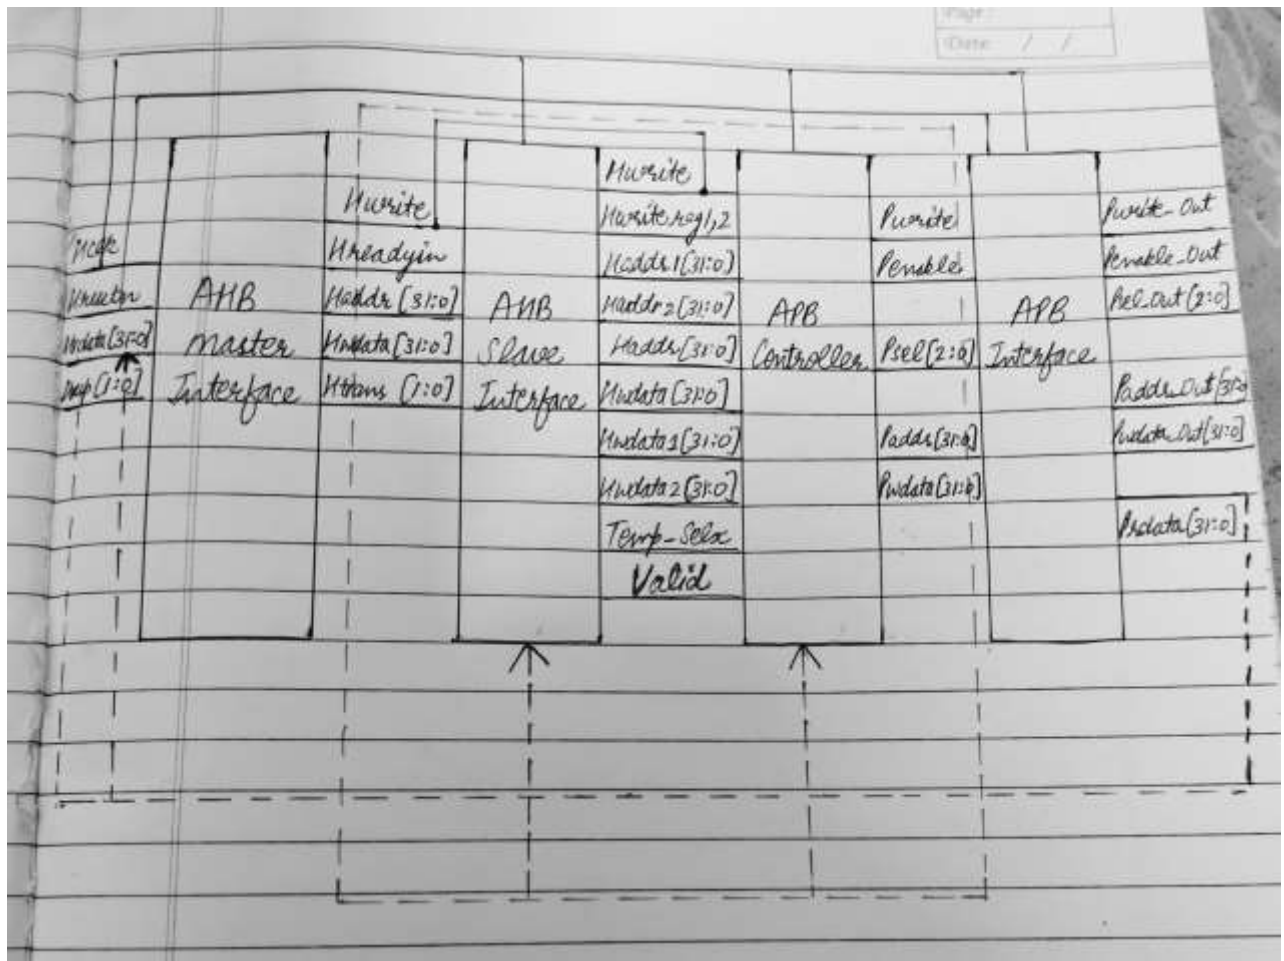 Page:
Date: / /
Hclk
Hresetn
Hrdata[31:0]
Hresp[1:0]
AHB
Master
Interface
Hwrite
Hreadyin
Haddr[31:0]
Hwdata[31:0]
Htrans [1:0]
AHB
Slave
Interface
Hwrite
Hwritereg1,2
Haddr1[31:0]
Haddr2[31:0]
Haddr[31:0]
Hwdata[31:0]
Hwdata1[31:0]
Hwdata2[31:0]
Temp_Selx
Valid
APB
Controller
Pwrite
Penable
Psel[2:0]
Paddr[31:0]
Pwdata[31:0]
APB
Interface
Pwrite_Out
Penable_Out
Psel_Out[2:0]
Paddr_Out[31:0]
Pwdata_Out[31:0]
Prdata[31:0]